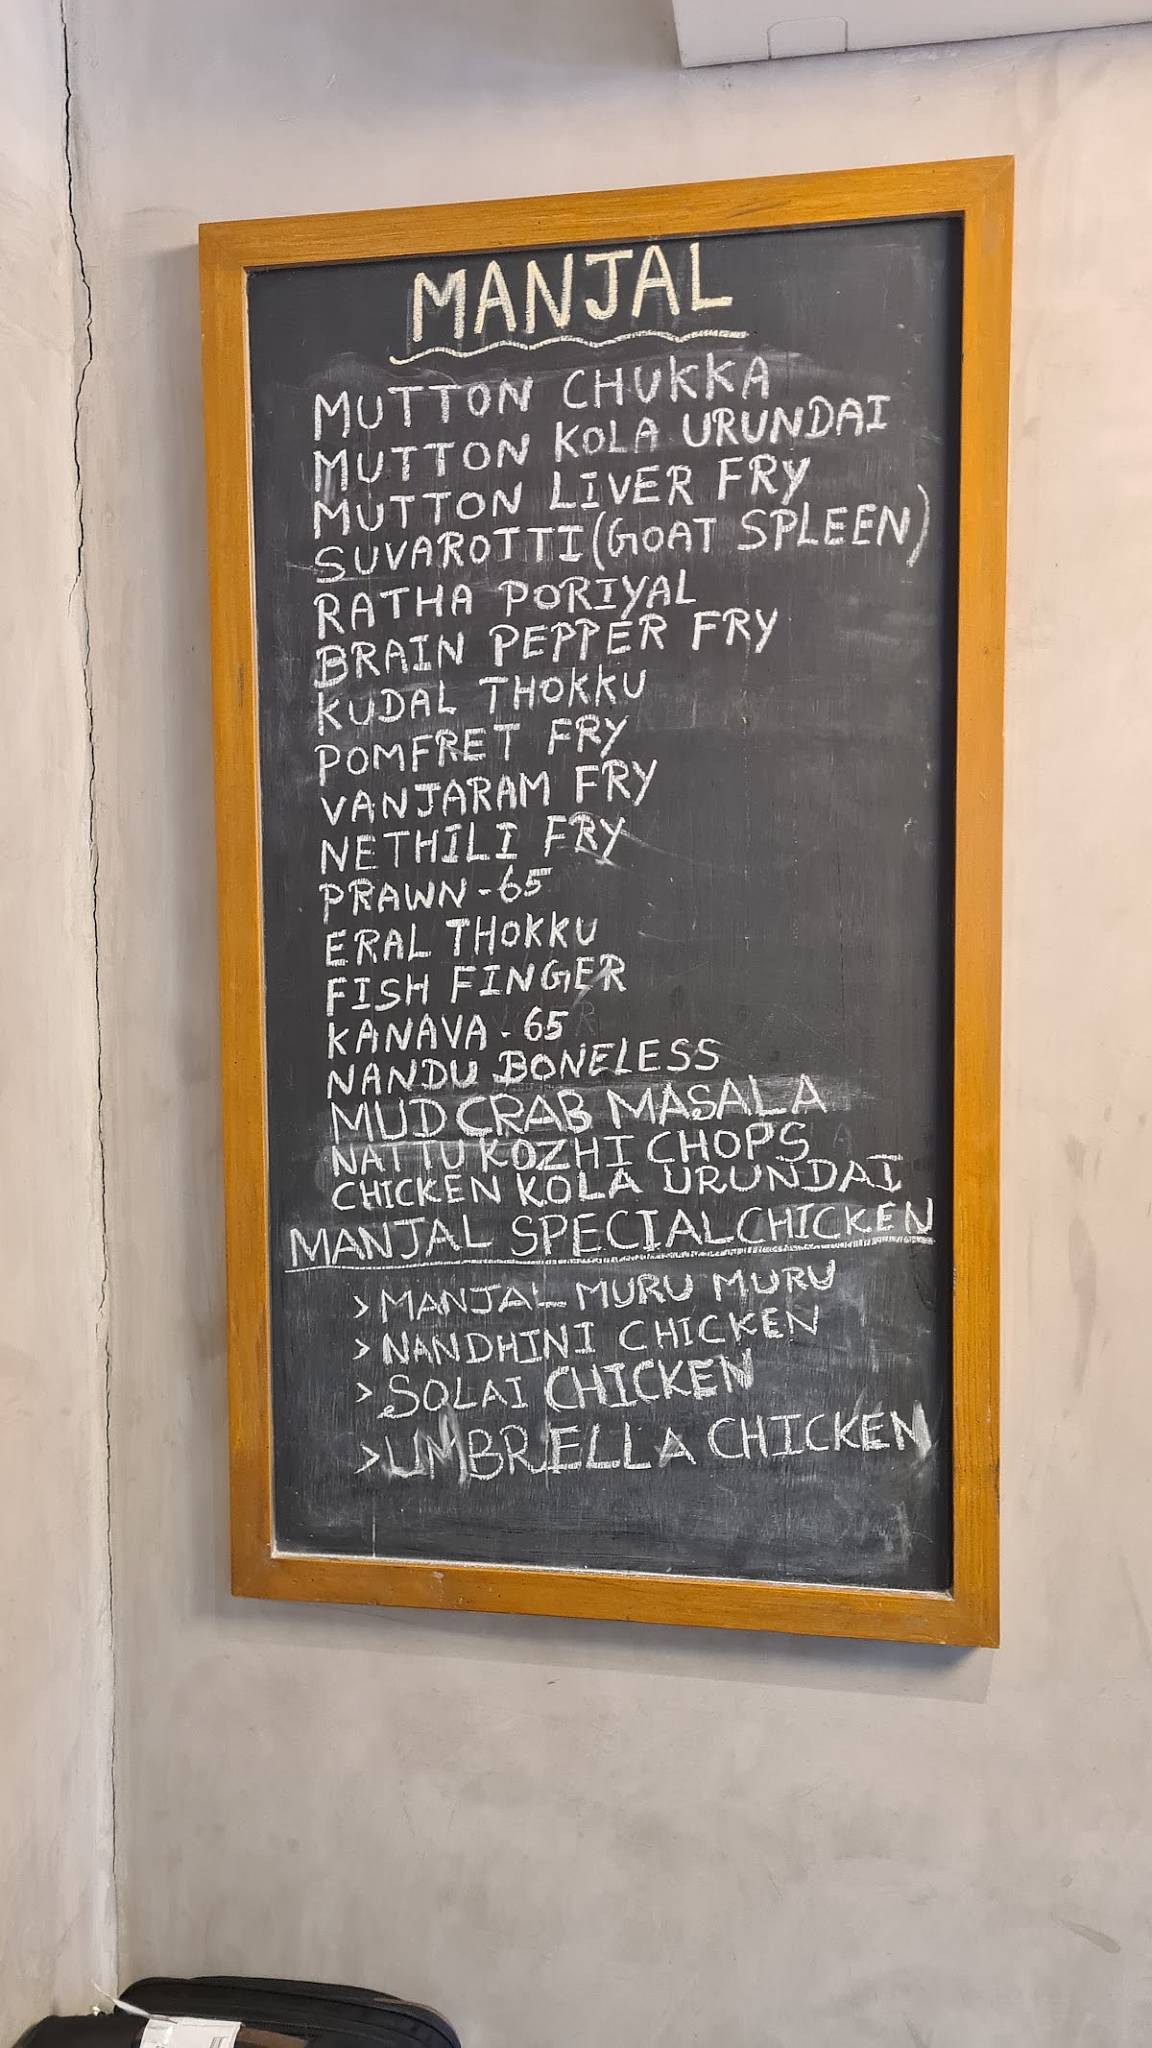 MANJAL
MUTTON CHUKKA
MUTTON KOLA URUNDAI
MUTTON LIVER FRY
SUVAROTTI (GOAT SPLEEN)
RATHA PORIYAL
BRAIN PEPPER FRY
KUDAL THOKKU
POMFRET FRY
VANJARAM FRY
NETHILI FRY
PRAWN - 65
ERAL THOKKU
FISH FINGER
KANAVA - 65
NANDU BONELESS
MUD CRAB MASALA
NATTU KOZHI CHOPS
CHICKEN KOLA URUNDAI
MANJAL SPECIAL CHICKEN
> MANJAL MURU MURU
> NANDHINI CHICKEN
> SOLAI CHICKEN
> UMBRELLA CHICKEN